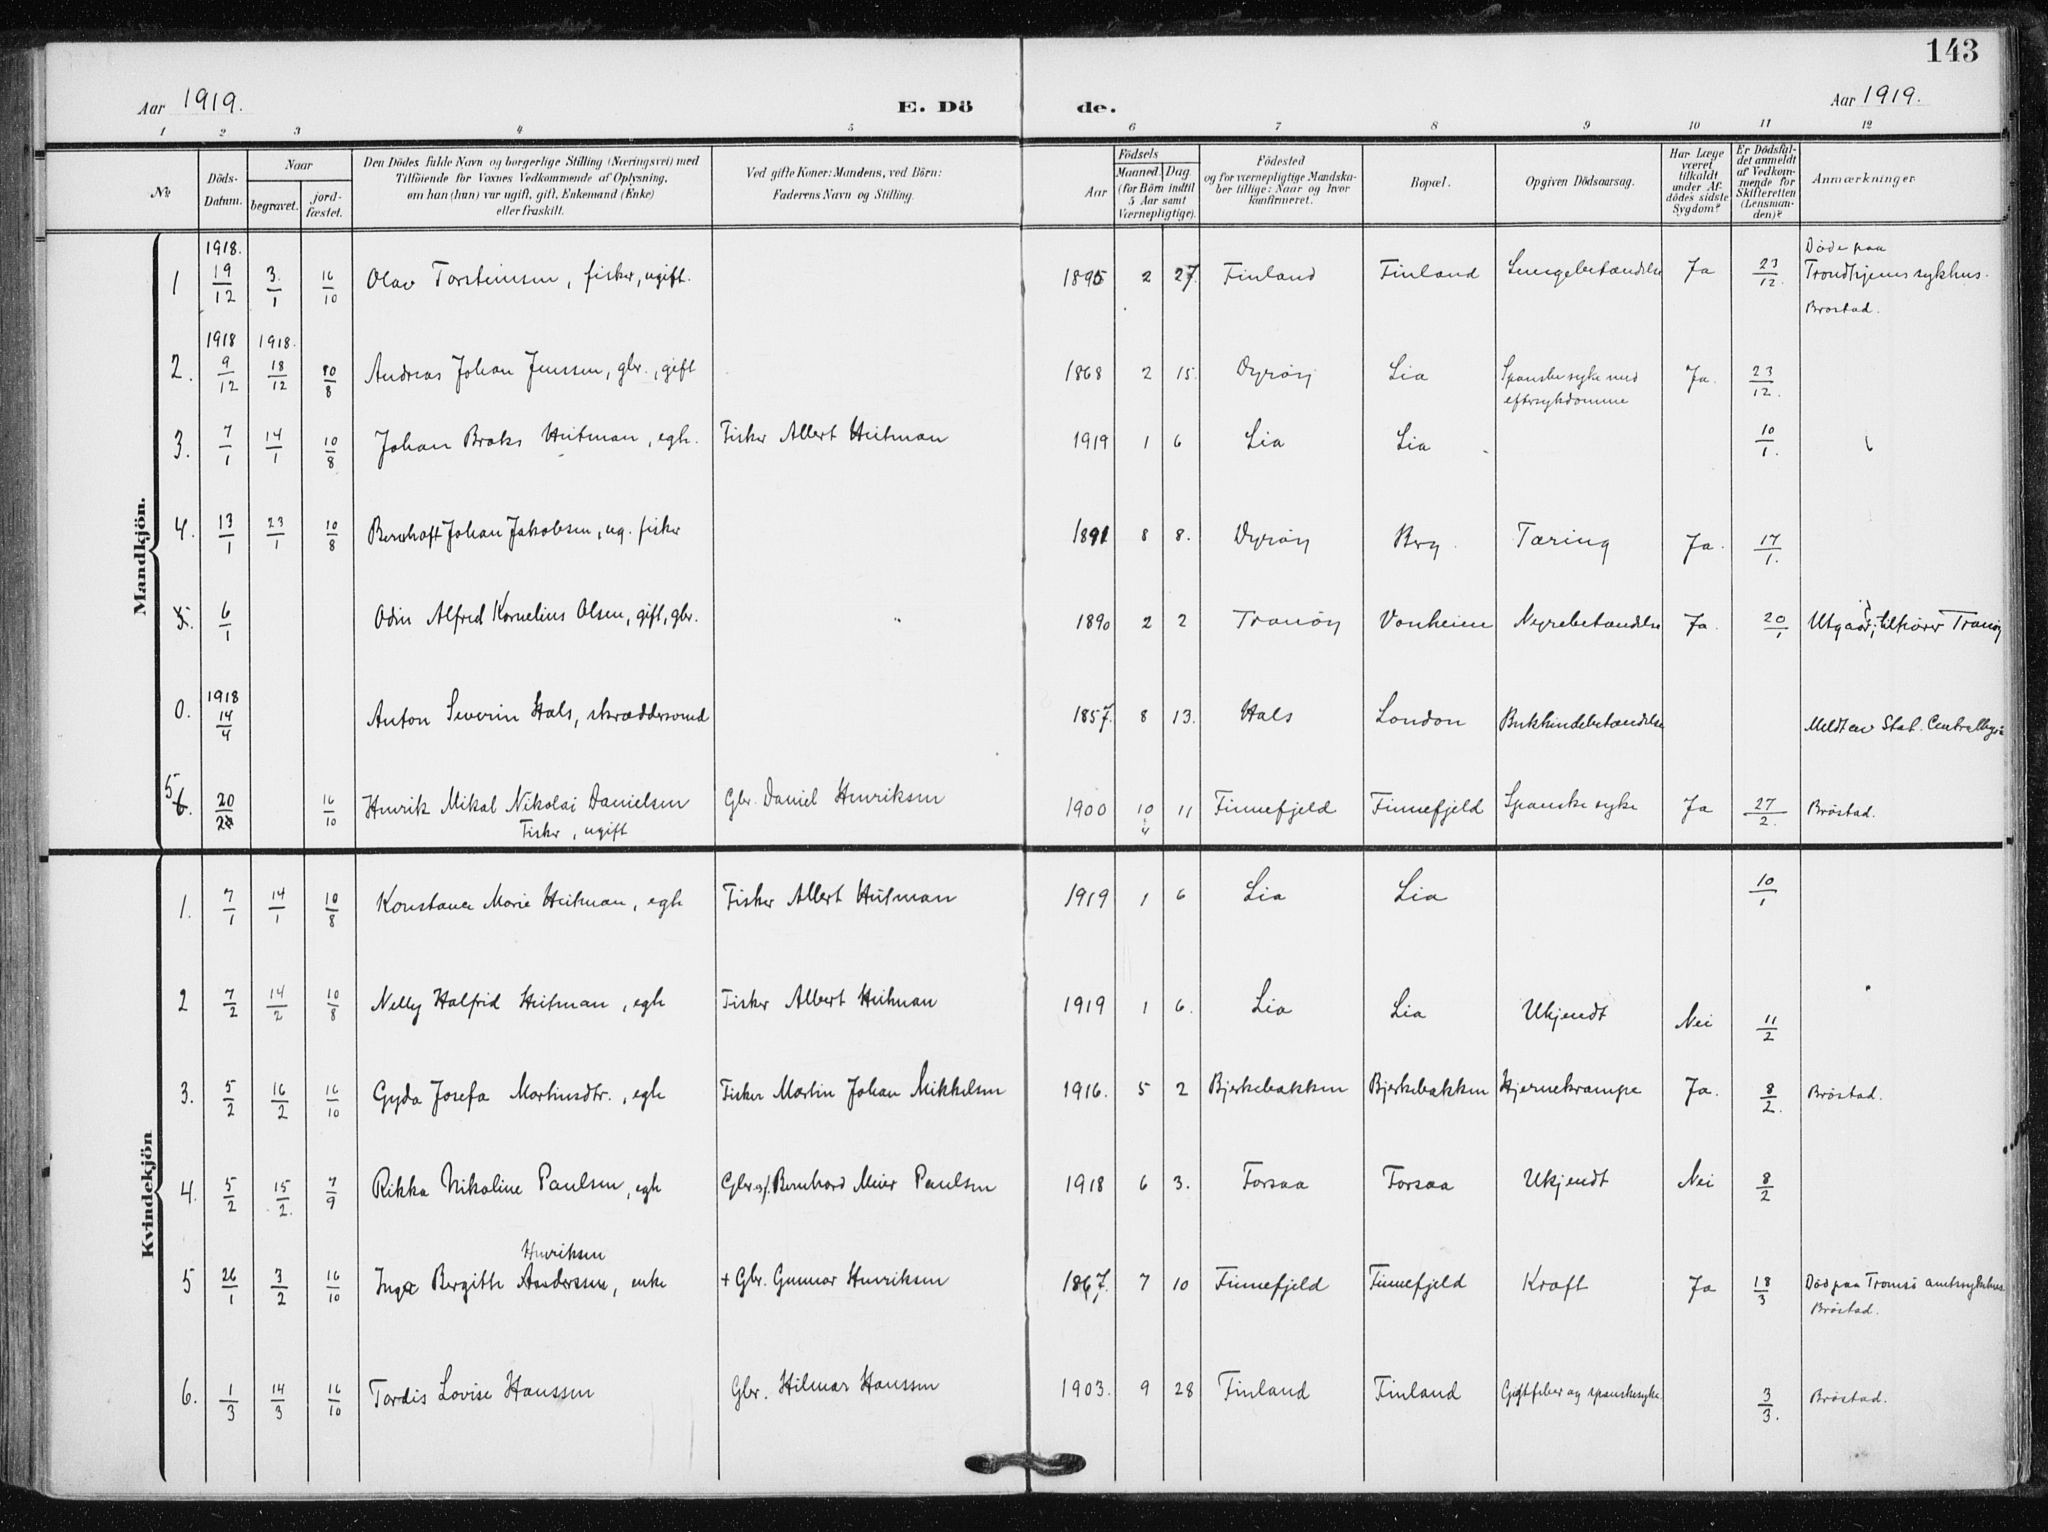 143
Aar 1919. E. Dö de. Aar 1919.
1 2 3 4 5 6 7 8 9 10 11 12
No Döds-Datum. Naar begravet. jord-fæstet. Den Dödes fulde Navn og borgerlige Stilling (Næringsvei) med Tilföiende for Voxnes Vedkommende af Oplysning, om han (hun) var ugift, gift, Enkemand (Enke) eller fraskilt. Ved gifte Koner: Mandens, ved Börn: Faderens Navn og Stilling. Födsels Aar Maaned. Dag. (for Börn indtil 5 Aar samt Værnepligtige). Födested og for værnepligtige Mandska-ber tillige: Naar og hvor konfirmeret. Bopæl. Opgiven Dödsaarsag. Har Læge været tilkaldt under Af-dödes sidste Sygdom? Er Dödsfal-det anmeldt af Vedkom-mende for Skifteretten (Lensman-den)? Anmærkninger.
Mandkjön.
1 1918. 19/12 3./1 16/10 Olav Torsteinsen, fisker, ugift. 1895 2 27. Finland Finland Lungebetændelse Ja 23/12. Døde paa Trondhjems sykhus. Brøstad.
2. 1918 9/12 1918. 18/12 10/8 Andreas Johan Jenssen, gbr., gift 1868 2 15. Dyrøy Lia Spanske syke med eftersykdomme Ja. 23/12.
3. 7/1 14/1 10/8 Johan Braks Heitman, egh. Fisker Albert Heitman 1919 1 6 Lia Lia 10/1.
4. 13/1 23/1 10/8 Bernhoft Johan Jakobsen, ug. fisker 1891 8 8. Dyrøy Berg. Tæring Ja. 17/1.
5. 6/1 Odin Alfred Kornelius Olsen, gift, gbr. 1890 2 2 Tranøy Vonheim Nyrebetændelse Ja. 20/1 Utgaar, tilhører Tranøy
0. 1918 14/4 Anton Severin Hals, skræddersvend 1857. 8 13. Hals London Bukhindebetændelse Meldt av Stat. Centralbyrå
5 6. 20/2 16/10 Henrik Mikal Nikolai Danielsen Fisker, ugift Gbr. Daniel Henriksen 1900 10/4 11 Finnefjeld Finnefjeld Spanske syke Ja 27/2. Brøstad.
Kvindekjön
1. 7/1 14/1 10/8 Konstance Marie Heitman, egh Fisker Albert Heitman 1919 1 6 Lia Lia 10/1
2 7/2 14/2 10/8 Nelly Halfrid Heitman, egh Fisker Albert Heitman 1919 1 6. Lia Lia Ukjendt Nei 11/2
3. 5/2 16/2 16/10 Gyda Josefa Martinsdtr., egh Fisker Martin Johan Mikkelsen 1916. 5 2 Bjerkebakken Bjerkebakken Hjernekrampe Ja. 8/2. Brøstad.
4. 5/2 15/2. 7/9 Rikka Nikoline Paulsen, egh Gbr. s/. Bernhard Meier Paulsen 1918 6 3. Forsaa Forsaa Ukjendt Nei 8/2
5 26/1 3/2 16/10 Inga Bergith Anderssen, Henriksen enke + Gbr. Gunnar Henriksen 1867. 7 10 Finnefjeld Finnefjeld Kræft Ja 18/3 Død paa Tromsø amtssykehus Brøstad.
6. 1/3 14/3 16/10 Tordis Lovise Hanssen Gbr. Hilmar Hanssen 1903. 9 28 Finland Finland Gigtfeber og spanskesyke 3/3. Brøstad.